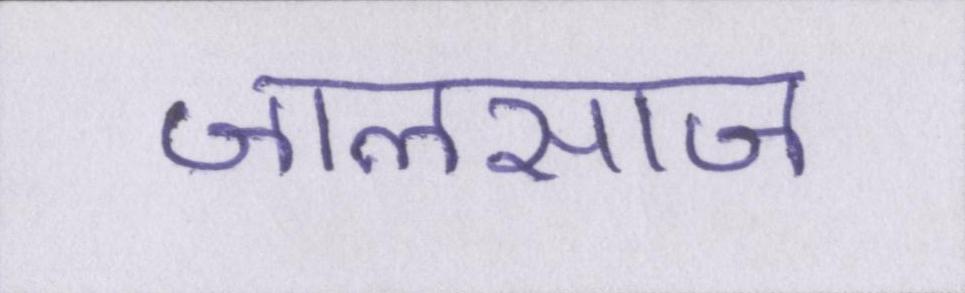 जालसाज